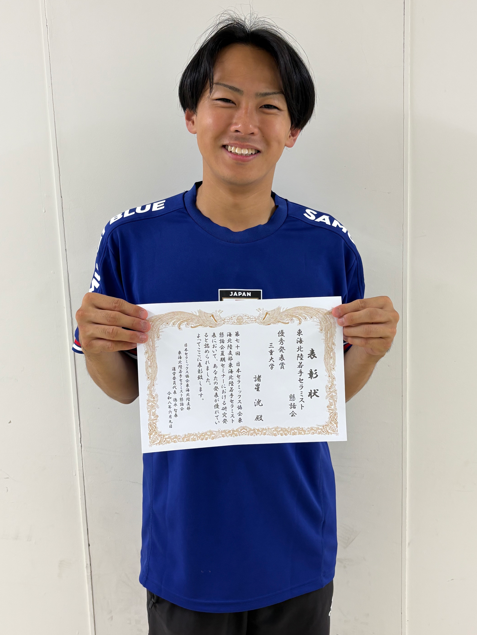 BLUE
SAM
JAPAN
表彰状
東海北陸若手セラミスト
懇話会
優秀発表賞
三重大学
諸星 洸 殿
第七十回 日本セラミックス協会東
海北陸支部東海北陸若手セラミスト
懇話会夏期セミナーにおける研究発
表において、あなたの発表が優れてい
ると認められました。
よってここに表彰致します。
日本セラミックス協会東海北陸支部
東海北陸若手セラミスト懇話会